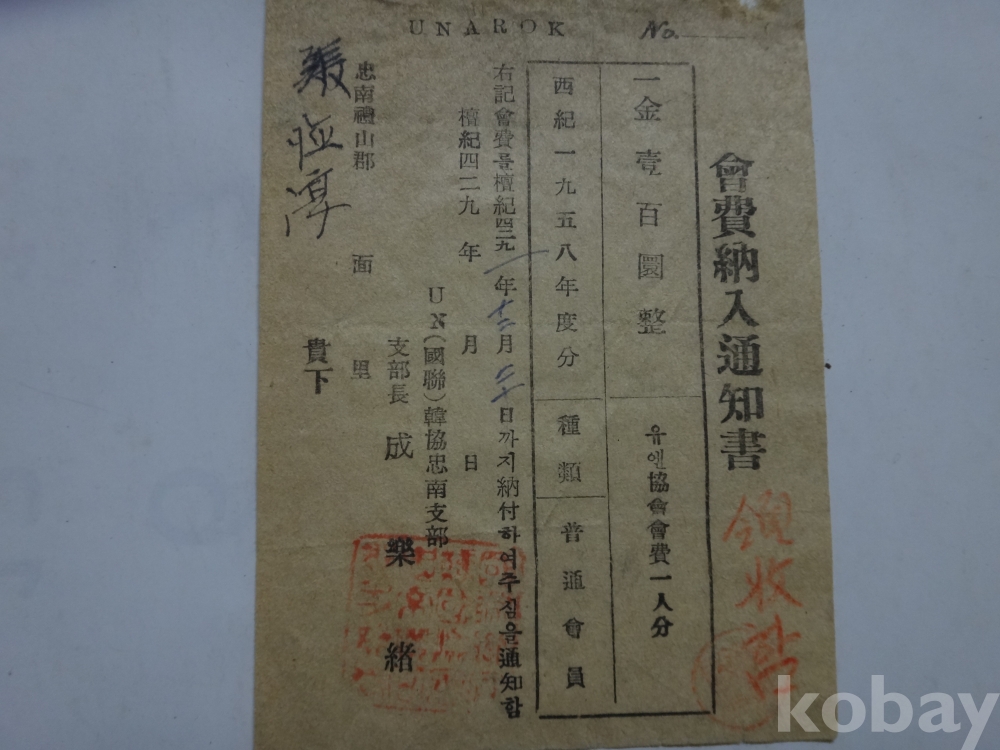 UNAROK
No.
會費納入通知書
一金壹百圜整
유엔協會會費一人分
西紀一九五八年度分
種類
普通會員
右記會費를檀紀四二九一年十二月二十日까지納付하여주심을通知함
檀紀四二九 年 月 日
UN(國聯)韓協忠南支部
支部長 成樂緖
忠南禮山郡 面 里
貴下
領收
kobay